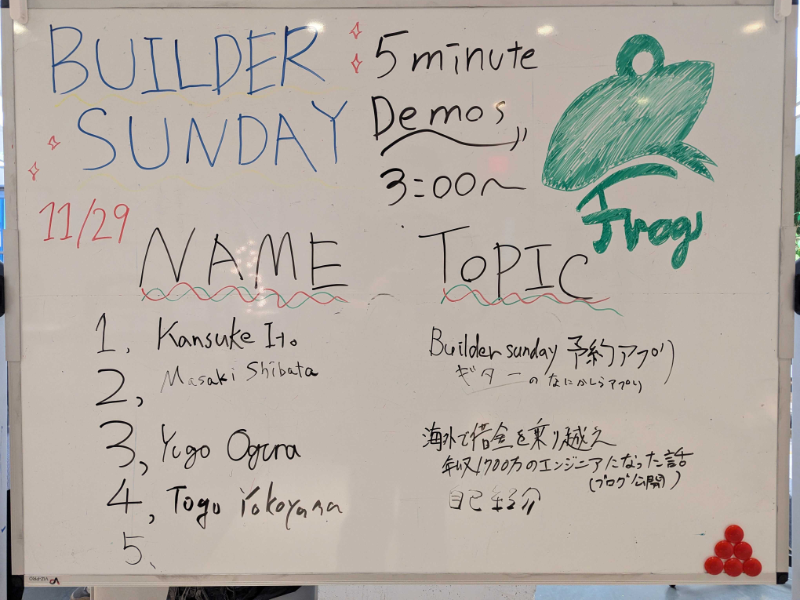 BUILDER
SUNDAY
11/29
5 minute
Demos
3:00~
Frogs
NAME
TOPIC
1. Kansuke Ito
Builder sunday 予約アプリ
2, Masaki Shibata
ギターのなにかしらアプリ
3, Yugo Ogura
海外で借金を乗り越え
年収1700万のエンジニアになった話
(ブログ公開)
4, Togo Yokoyama
自己紹介
5、